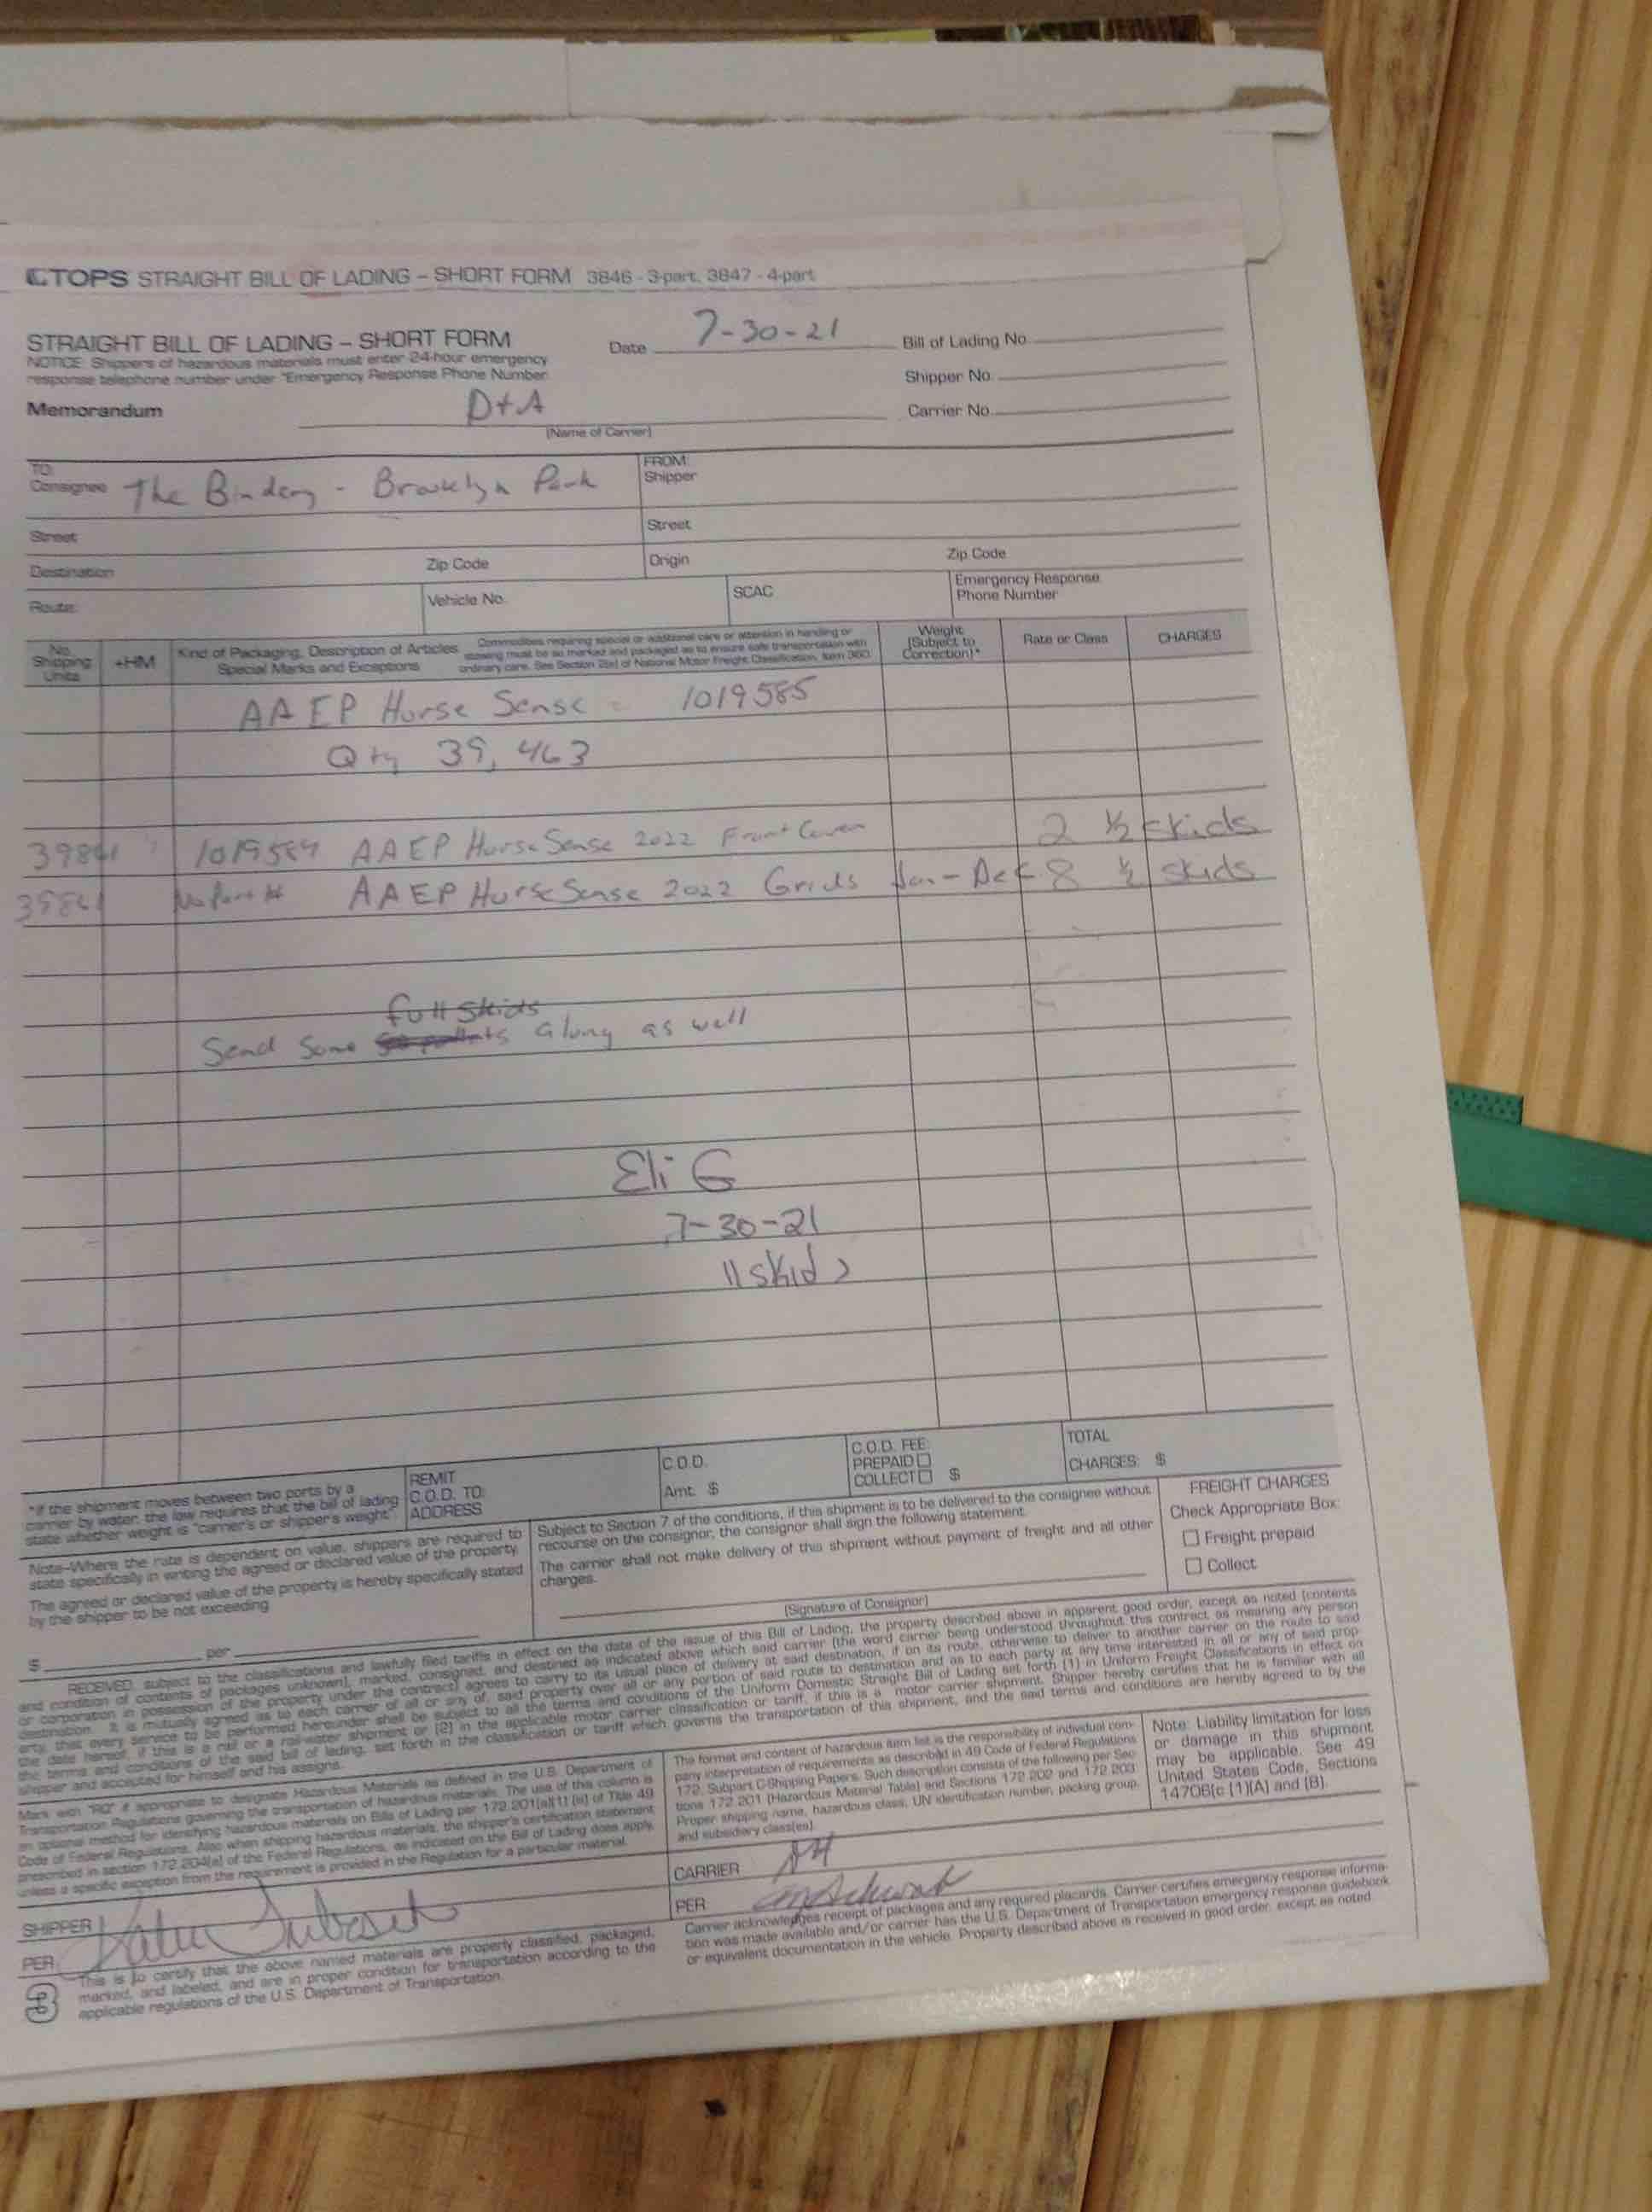 TOPS STRAIGHT BILL OF LADING – SHORT FORM 3846 - 3-part, 3847 - 4-part
STRAIGHT BILL OF LADING – SHORT FORM
NOTICE: Shippers of hazardous materials must enter 24-hour emergency
response telephone number under "Emergency Response Phone Number
Date 7-30-21
Bill of Lading No.
Shipper No.
Carrier No.
Memorandum D+A
(Name of Carrier)
TO:
Consignee The Bindery - Brooklyn Park
FROM:
Shipper
Street
Street
Destination Zip Code
Origin Zip Code
Route:
Vehicle No.
SCAC
Emergency Response
Phone Number
No.
Shipping
Units
+HM
Kind of Packaging, Description of Articles
Special Marks and Exceptions
Commodities requiring special or additional care or attention in handling or
stowing must be so marked and packaged as to ensure safe transportation with
ordinary care. See Section 2(e) of National Motor Freight Classification, Item 360.
Weight
(Subject to
Correction)*
Rate or Class
CHARGES
AAEP Horse Sense - 1019585
Qty 39,463
39861 1019584 AAEP HorseSense 2022 Front Cover 2 ½ skids
39861 No Part # AAEP HorseSense 2022 Grids Jan-Dec 8 ½ skids
full skids
Send Some along as well
Eli G
7-30-21
11 skids
*If the shipment moves between two ports by a
carrier by water, the law requires that the bill of lading
state whether weight is "carrier's or shipper's weight".
REMIT
C.O.D. TO:
ADDRESS
C.O.D.
Amt. $
C.O.D. FEE:
PREPAID
COLLECT $
TOTAL
CHARGES: $
Note–Where the rate is dependent on value, shippers are required to
state specifically in writing the agreed or declared value of the property.
The agreed or declared value of the property is hereby specifically stated
by the shipper to be not exceeding
$ per
Subject to Section 7 of the conditions, if this shipment is to be delivered to the consignee without
recourse on the consignor, the consignor shall sign the following statement.
The carrier shall not make delivery of this shipment without payment of freight and all other
charges.
(Signature of Consignor)
FREIGHT CHARGES
Check Appropriate Box:
Freight prepaid
Collect
RECEIVED subject to the classifications and lawfully filed tariffs in effect on the date of the issue of this Bill of Lading, the property described above in apparent good order, except as noted (contents
and condition of contents of packages unknown), marked, consigned, and destined as indicated above which said carrier (the word carrier being understood throughout this contract as meaning any person
or corporation in possession of the property under the contract) agrees to carry to its usual place of delivery at said destination, if on its route, otherwise to deliver to another carrier on the route to said
destination. It is mutually agreed as to each carrier of all or any of, said property over all or any portion of said route to destination and as to each party at any time interested in all or any of said prop-
erty, that every service to be performed hereunder shall be subject to all the terms and conditions of the Uniform Domestic Straight Bill of Lading set forth (1) in Uniform Freight Classifications in effect on
the date hereof, if this is a rail or a rail-water shipment or (2) in the applicable motor carrier classification or tariff, if this is a motor carrier shipment. Shipper hereby certifies that he is familiar with all
the terms and conditions of the said bill of lading, set forth in the classification or tariff which governs the transportation of this shipment, and the said terms and conditions are hereby agreed to by the
shipper and accepted for himself and his assigns.
Mark with "RQ" if appropriate to designate Hazardous Materials as defined in the U.S. Department of
Transportation Regulations governing the transportation of hazardous materials. The use of this column is
an optional method for identifying hazardous materials on Bills of Lading per 172.201(a)(1)(iii) of Title 49
Code of Federal Regulations. Also when shipping hazardous materials, the shipper's certification statement
prescribed in section 172.204(a) of the Federal Regulations, as indicated on the Bill of Lading does apply,
unless a specific exception from the requirement is provided in the Regulation for a particular material.
The format and content of hazardous item list is the responsibility of individual com-
pany interpretation of requirements as described in 49 Code of Federal Regulations
172, Subpart C-Shipping Papers. Such description consists of the following per Sec-
tions 172.201 (Hazardous Material Table) and Sections 172.202 and 172.203:
Proper shipping name, hazardous class, UN identification number, packing group,
and subsidiary class(es).
Note: Liability limitation for loss
or damage in this shipment
may be applicable. See 49
United States Code, Sections
14706(c)(1)(A) and (B).
SHIPPER
PER
CARRIER
PER
This is to certify that the above named materials are properly classified, packaged,
marked, and labeled, and are in proper condition for transportation according to the
applicable regulations of the U.S. Department of Transportation.
Carrier acknowledges receipt of packages and any required placards. Carrier certifies emergency response informa-
tion was made available and/or carrier has the U.S. Department of Transportation emergency response guidebook
or equivalent documentation in the vehicle. Property described above is received in good order, except as noted.
3